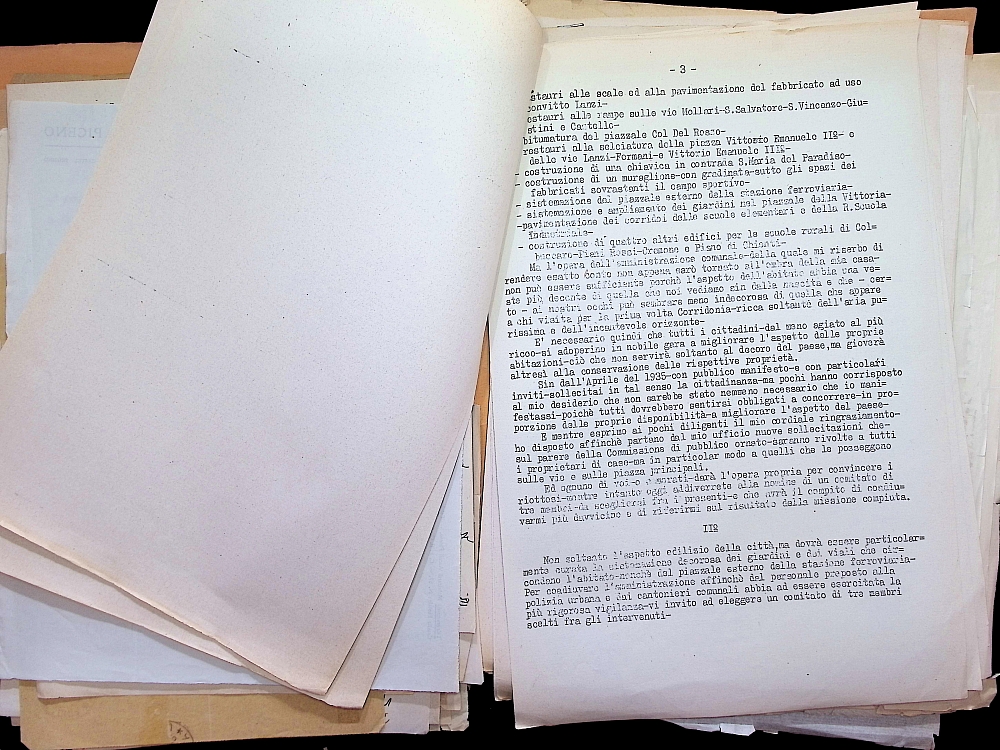 - 3 -
estauri alle scale ed alla pavimentazione del fabbricato ad uso
convitto Lanzi-
estauri alle rampe sulle vie Mollari-S.Salvatore-S.Vincenzo-Giu=
stini e Castello-
bitumatura del piazzale Col Del Rosso-
restauri alla selciatura della piazza Vittorio Emanuele IIIº- e
delle vie Lanzi-Formani-e Vittorio Emanuele IIIº-
- costruzione di una chiavica in contrada S.Maria del Paradiso-
- costruzione di un muraglione-con gradinata-sutto gli spazi dei
fabbricati sovrastanti il campo sportivo-
- sistemazione del piazzale esterno della stazione ferroviaria-
- sistemazione e ampliamento dei giardini nel piazzale della Vittoria-
-pavimentazione dei corridoi delle scuole elementari e della R.Scuola
Industriale-
- costruzione di quattro altri edifici per le scuole rurali di Col=
beccaro-Piani Rossi-Cremone e Piano di Chienti-
Ma l'opera dell'amministrazione comunale-della quale mi riserbo di
rendere esatto conto non appena sarò tornato all'ombra della mia casa-
non può essere sufficiente perchè l'aspetto dell'abitato abbia una ve=
ste più decente di quella che noi vediamo sin dalla nascita e che - cer=
to - ai nostri occhi può sembrare meno indecorosa di quella che appare
a chi visita per la prima volta Corridonia-ricca soltanto dell'aria pu=
rissima e dell'incantevole orizzonte-
E' necessario quindi che tutti i cittadini-dal meno agiato al più
ricco-si adoperino in nobile gara a migliorare l'aspetto delle proprie
abitazioni-ciò che non servirà soltanto al decoro del paese,ma gioverà
altresì alla conservazione delle rispettive proprietà.
Sin dall'Aprile del 1935-con pubblico manifesto-e con particolari
inviti-sollecitai in tal senso la cittadinanza-ma pochi hanno corrisposto
al mio desiderio che non sarebbe stato nemmeno necessario che io mani=
festassi-poichè tutti dovrebbero sentirsi obbligati a concorrere-in pro=
porzione delle proprie disponibilità-a migliorare l'aspetto del paese-
E mentre esprimo ai pochi diligenti il mio cordiale ringraziamento-
ho disposto affinchè partano dal mio ufficio nuove sollecitazioni che-
sul parere della Commissione di pubblico ornato-saranno rivolte a tutti
i proprietari di case-ma in particolar modo a quelli che le posseggono
sulle vie e sulle piazze principali.
Ed ognuno di voi-o camerati-darà l'opera propria per convincere i
riottosi-mentre intanto oggi addiverrete alla nomina di un comitato di
tre membri-da scegliersi fra i presenti-e che avrà il compito di coadiu=
varmi più davvicino e di riferirmi sul risultato della missione compiuta.
IIº
Non soltanto l'aspetto edilizio della città,ma dovrà essere particolar=
mente curata la sistemazione decorosa dei giardini e dei viali che cir=
condano l'abitato-nonchè del piazzale esterno della stazione ferroviaria-
Per coadiuvare l'amministrazione affinchè dal personale preposto alla
polizia urbana e dai cantonieri comunali abbia ad essere esercitata la
più rigorosa vigilanza-vi invito ad eleggere un comitato di tre membri
scelti fra gli intervenuti-